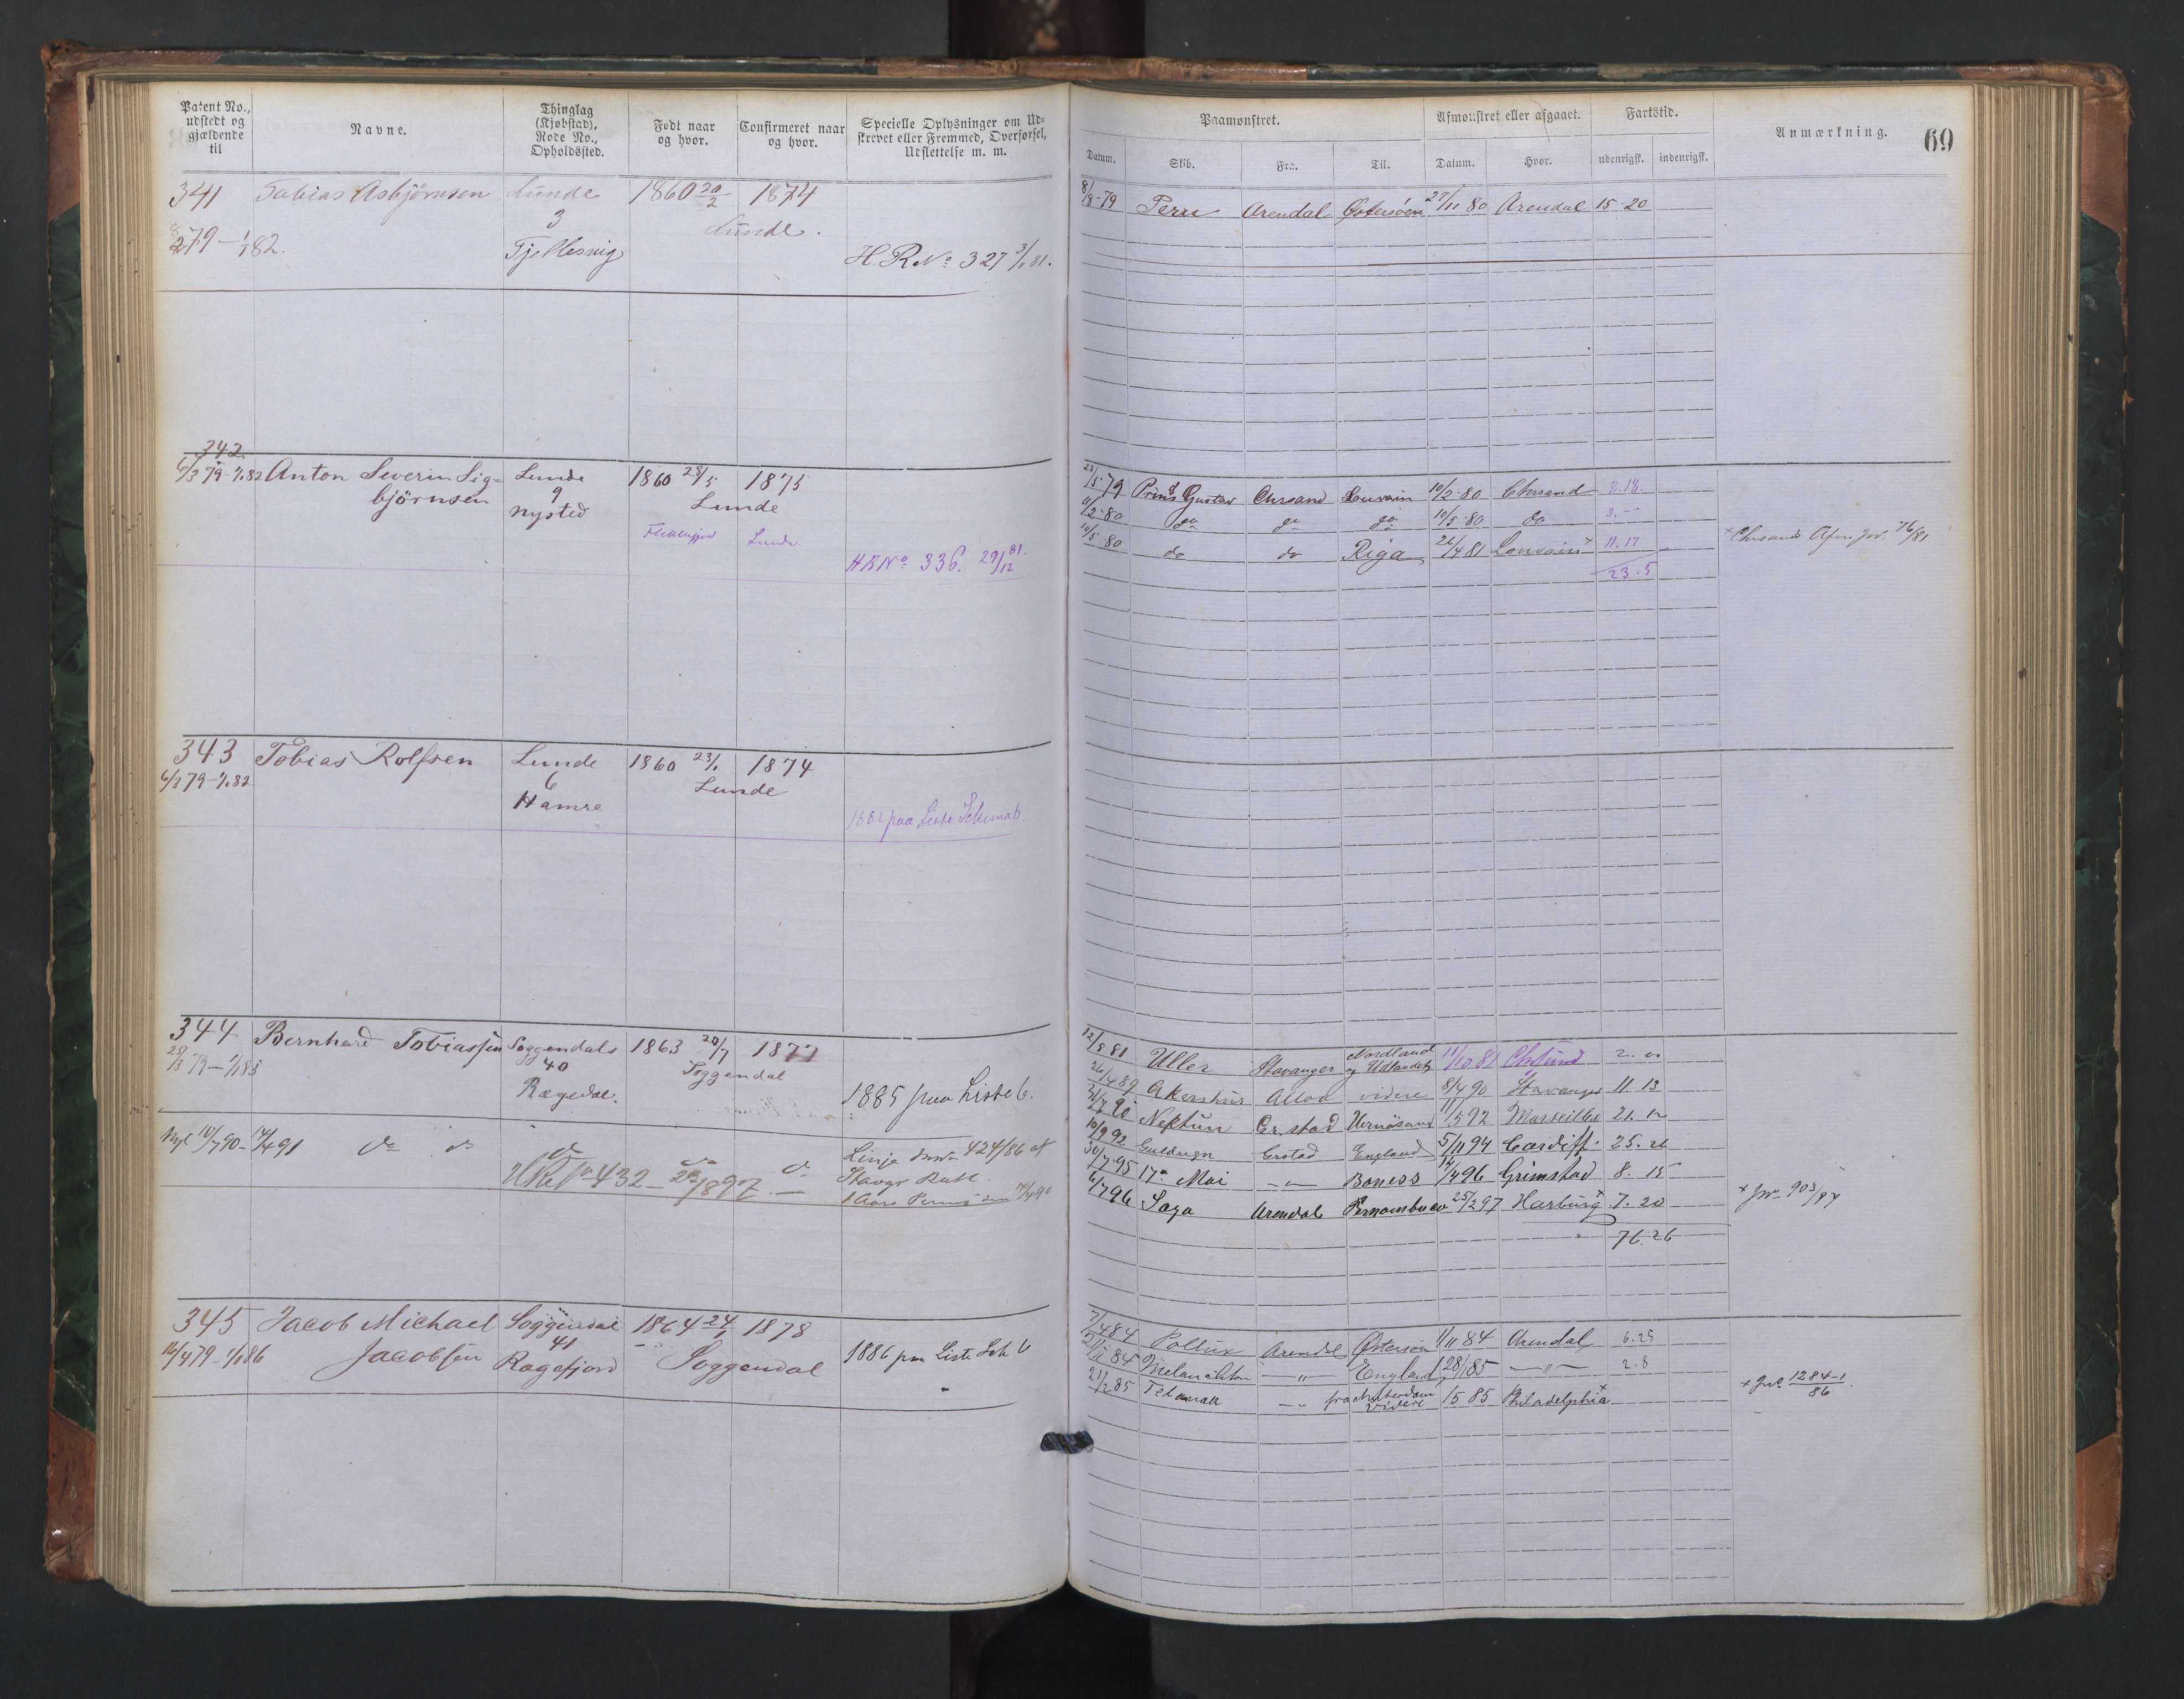 Patent No.,
udstedt og
gjældende
til
Navne.
Thinglag
(Kjøbstad),
Rode No.,
Opholdssted.
Født naar
og hvor.
Confirmeret naar
og hvor.
Specielle Oplysninger om Ud-
skrevet eller Fremmed, Overførsel,
Udslettelse m. m.
341 Tobias Asbjørnsen Lunde 1860 20/2 1874
3 Lunde.
79 – 1/1 82.
H. R. No 327 3/1 81.
342
6/3 79 - 1/1 82 Anton Severin Sig- Lunde 1860 28/5 1875
bjørnsen 9 Lunde
Nysted
Lunde
H R No 336. 29/12 81.
343 Tobias Rolfsen Lunde 1860 23/1 1874
6/3 79 - 1/1 82 6 Lunde
Hamre
1882 paa Liste Schema 6.
344 Bernhard Tobiassen Soggendals 1863 20/7 1877
28/3 79 – 1/1 85 40 Soggendal
Rægedal.
1885 paa Liste 6.
Nyt 10/7 90 - 14/4 91 do do do do
Linje 424/86 af
H R No 432 – 23/8 97
345 Jacob Michael Soggendal 1864 24/1 1878
16/4 79 - 1/1 86 Jacobsen 41 Soggendal
Rægefjord
1886 paa Liste Sch 6
Paamønstret. Afmønstret eller afgaaet. Fartstid. Anmærkning. 69
Datum. Skib. Fra. Til. Datum. Hvor. udenrigsk. indenrigsk.
8/8 - 79 Peru Arendal Østersøen 27/11 80 Arendal 15 - 20
23/5 79 Prins Gustav Chrsand Louvain 10/2 - 80 Chrsand 8.18.
11/2 - 80 do do do 10/5 - 80 do 3. –
10/5 80 do do Riga 26/4 81 Louvain × 11.17 × Chrsands Afm Jor. 76/81
23.5
12/8 81 Uller Stavanger Nordland og Udlandet 11/10 81 Chrsund
26/4 89 Akershus Alloa videre 8/4 90 Stavanger 11. 13
21/7 90 Neptun Gr.stad Hernösand 11/5 92 Marseilles 21.
10/9 92 Guldregn Grstad England 5/11 94 Cardiff 25. 26
30/7 - 95 17de Mai – " – Boness 14/4 96 Grimstad 8. 15
6/7 96 Saga Arendal Pernambuco 25/2 97 Harburg × 7. 20 × Jno 903/97
76.26
7/4 84 Pollux Arendal Østersøen 1/11 84 Arendal 6.25
21/11 84 Melanchton – " – England 28/1 85 – " – 2.8
21/2 85 – " – fra Amsterdam videre 15 85 Philadelphia × × Jno 1284-1/86.